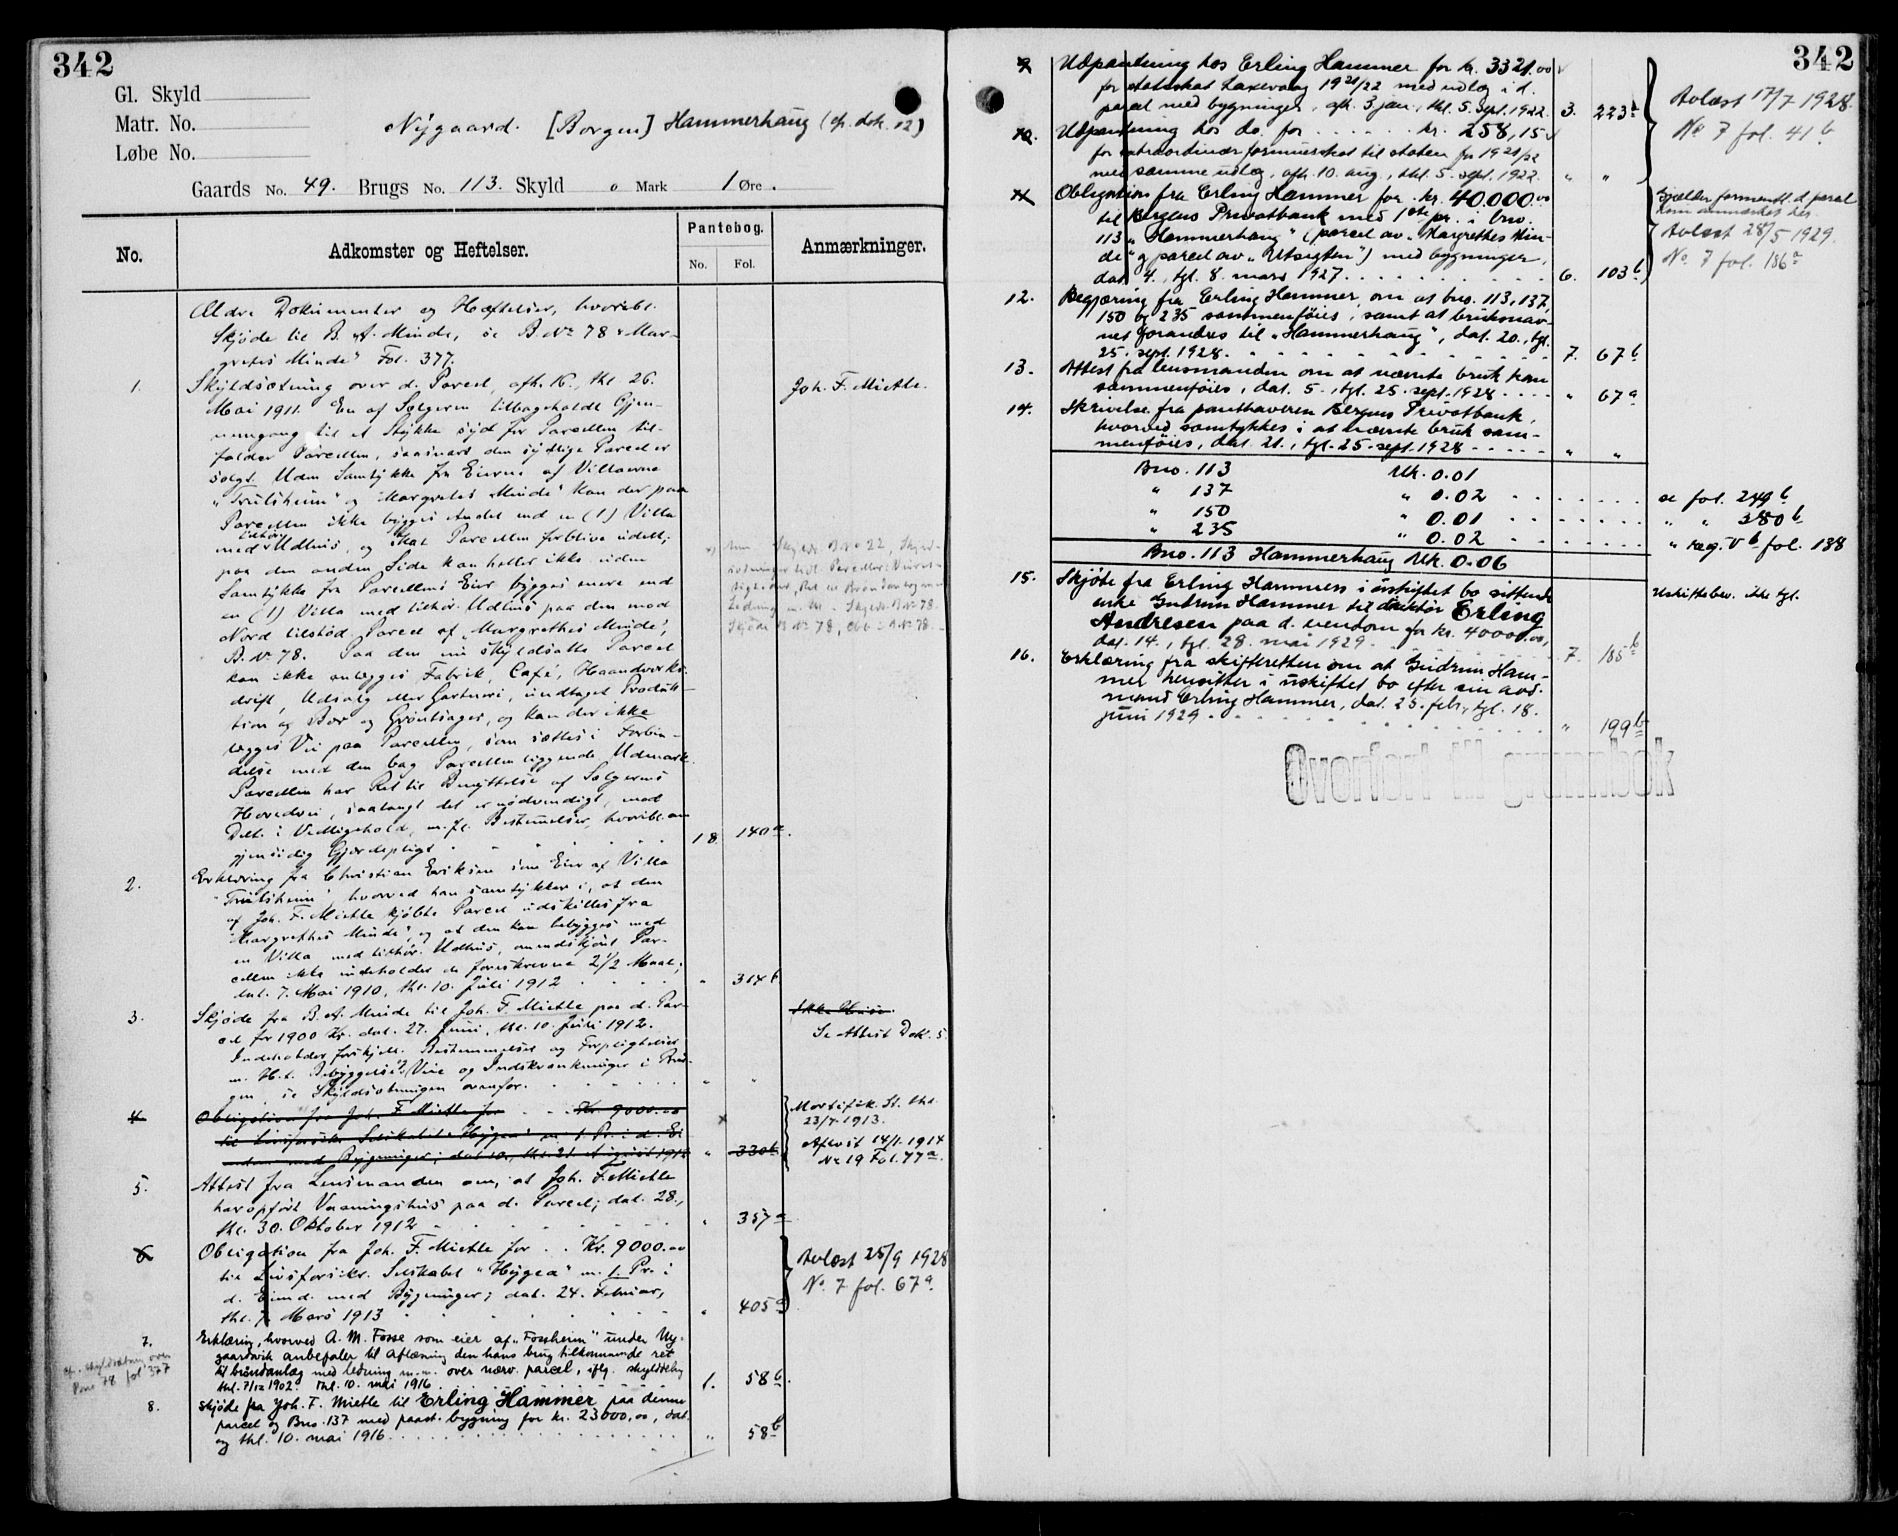 342
Gl. Skyld
Matr. No.
Løbe No.
Nygaard. [Borgen] Hammerhaug (cfr. dok. 12)
Gaards No. 49. Brugs No. 113. Skyld 0 Mark 1 Øre.
No.
Adkomster og Heftelser.
Pantebog.
No. Fol.
Anmærkninger.
Ældre Dokumenter og Hæftelser, hvoribl.
Skjøde til B. A. Minde, se B. No 78 "Mar-
gretes Minde" Fol. 377.
1. Skyldsætning over d. Parcel, afh. 18., thl. 26. Joh. F. Mietle.
Mai 1911. En af Sælgeren tilbageholdt Gjen-
nemgang til et Stykke syd for Parcellen til-
falder Parcellen, saasnart den sydlige Parcel er
solgt. Uden Samtykke fra Eierne af Villaerne
"Trulsheim" og "Margretes Minde" kan der paa
Parcellen ikke bygges Andet end en (1) Villa
med tilhør. Udhus, og skal Parcellen forblive udelt;
paa den anden Side kan heller ikke uden
Samtykke fra Parcellens Eier bygges mere end
en (1) Villa med tilhør. Udhus paa den mod
Nord tilstød. Parcel af "Margrethes Minde",
B. No 78. Paa den nu skyldsatte Parcel
kan ikke anlægges Fabrik, Café, Haandverks-
drift, Udsalg eller Gartneri, undtaget Produk-
tion af Bær og Grøntsager, og kan der ikke
lægges Vei paa Parcellen, som sættes i Forbin-
delse med den bag Parcellen liggende Udmark.
Parcellen har Ret til Benyttelse af Sælgerens
Hovedvei, saalangt det er nødvendigt, mod
Delt. i Vedligehold, m. fl. Bestemmelser, hvoribl. om
gjensidig Gjærdepligt 18 140a.
2. Erklæring fra Christian Eriksen som Eier af Villa
"Trulsheim", hvorved han samtykker i, at den
af Joh. F. Mietle kjøbte Parcel udskilles fra
"Margrethes Minde", og at den kan bebygges med
en Villa med tilhør. Udhus, uanseet Par-
cellen ikke indeholder de foreskrevne 2 1/2 Maal;
dat. 7. Mai 1910, thl. 10. Juli 1912 " 314b
3. Skjøde fra B. A. Minde til Joh. F. Mietle paa d. Par-
cel for 1900 Kr. dat. 27. Juni, thl. 10. Juli 1912.
Indeholder forskjell. Bestemmelser og Forpligtelser
m. H. t. Bebyggelse, Veie og Indskrænkninger i Bru-
gen, se Skyldsætningen ovenfor. " "
Ikke Huse.
Se Attest Dok. 5.
4. Obligation fra Joh. F. Mietle for Kr. 9000.00
til Livsforsikr. Selskabet "Hygea" m. 1. Pr. i d. Ei-
endom med Bygninger; dat. 10., thl. 21. August 1912 " 330b
Mortifik. St. thl.
23/7 1913.
Aflæst 14/1 1914
No 19 Fol. 77a.
5. Attest fra Lensmanden om, at Joh. F. Mietle
har opført Vaaningshus paa d. Parcel; dat. 28.,
thl. 30. Oktober 1912 " 357a
6 Obligation fra Joh. F. Mietle for Kr. 9000.00
til Livsforsikr. Selskabet "Hygea" m. 1. Pr. i
d. Eiend. med Bygninger; dat. 24. Februar,
thl. 7. Mars 1913 " 405a
Avlæst 25/9 1928
No 7 fol. 67a.
7. Erklæring, hvorved A. M. Fosse som eier af "Fossheim" under Ny-
gaardvik anbefaler til aflæsning den hans brug tilkommende ret
til brøndanlæg med ledning m.m. over nærv. parcel, iflg. skylddeling
thl. 7/12 1902. Thl. 10. mai 1916 1. 58b.
cfr. skyldsætning over
Bno 78 fol 377
8. Skjøde fra Joh. F. Mietle til Erling Hammer paa denne
parcel og Bno. 137 med paast. bygning for kr. 23000,00, dat.
og thl. 10. mai 1916 " 58b
342
9 Udpantning hos Erling Hammer for kr. 3321.00
for statsskat Laxevaag 1921/22 med udlæg i d.
parcel med bygninger, afh. 3 jan., thl. 5. sept. 1922. 3. 223b
10. Udpantning hos do. for kr. 258,15
for extraordinær formuesskat til staten for 1921/22
med samme udlæg, afh. 10. aug., thl. 5. sept. 1922. " "
Avlæst 17/7 1928.
No 7 fol. 41b
11 Obligation fra Erling Hammer for kr. 40.000.00
til Bergens Privatbank med 1ste pr. i bno.
113 "Hammerhaug" (parcel av "Margrethes Min-
de" og parcel av "Utsigten") med bygninger,
dat. 4., tgl. 8. mars 1927 6. 103b
Gjælder formentl. d. parcel
som anmerket her.
Avlæst 28/5 1929.
No. 7 fol. 186a
12. Begjæring fra Erling Hammer om at bno. 113, 137,
150 og 235 sammenføies, samt at bruksnav-
net forandres til "Hammerhaug", dat. 20., tgl.
25. sept. 1928 7. 67b
13. Attest fra lensmanden om at nævnte bruk kan
sammenføies, dat. 5., tgl. 25. sept. 1928 " 67a
14. Skrivelse fra panthaveren Bergens Privatbank,
hvorved samtykkes i at nævnte bruk sam-
menføies, dat. 21., tgl. 25. sept. 1928 " "
Bno. 113 Mk. 0.01
" 137 " 0.02 se fol. 249b
" 150 " 0.01 " " 380b
" 235 " 0.02 " reg. Vb fol. 138
Bno. 113 Hammerhaug Mk. 0.06
15. Skjøte fra Erling Hammers i uskiftet bo sittende
enke Gudrun Hammer til direktør Erling
Andresen paa d. eiendom for kr. 40000.00,
dat. 14., tgl. 28. mai 1929 7. 185b
Uskiftebev. ikke tgl.
16. Erklæring fra skifteretten om at Gudrun Ham-
mer hensitter i uskiftet bo efter sin avd.
mand Erling Hammer, dat. 25. febr., tgl. 18.
juni 1929 " 199b
Overført til grunnbok